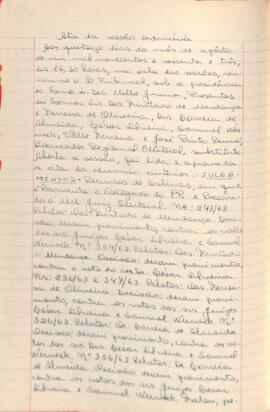 Ata da sessão ordinária
Aos quatorze dias do mês de agosto
de um mil novecentos e sessenta e três,
às 16,30 horas, na sala das sessões, reu-
niu-se o Tribunal, sob a presidência
do Exmo. Sr. Des. Mello Junior. Presentes
os Exmos. Srs. Des. Trindade de Mendonça
e Ferreira de Oliveira, Drs. Correia de
Almeida, César Silveira, Samuel Wer-
neck, Valle Ferreira e José Pinto Renó,
Procurador Regional Eleitoral, substituto.
Aberta a sessão, foi lida e aprovada
a ata da reunião anterior - JULGA-
MENTOS - Recursos de Salinas, em que
é Recorrente o Delegado do P.R. e Recorri-
do o MM. Juiz Eleitoral. Nº 243/63.
Relator: Des. Trindade de Mendonça. Deci-
são: deram provimento, contra os votos
dos srs. juízes César Silveira e Samuel
Werneck. Nº 334/63. Relator: Des. Trindade
de Mendonça. Decisão: deram provimento,
contra o voto do sr. Dr. César Silveira.
Ns. 236/63 e 347/63. Relator: Des. Ferrei-
ra de Oliveira. Decisão: deram provi-
mento, contra os votos dos srs. juízes
César Silveira e Samuel Werneck. Nº
326/63. Relator: Dr. Correia de Almeida.
Decisão: deram provimento, contra os vo-
tos dos srs. Drs. César Silveira e Samuel
Werneck. Nº 356/63. Relator: Dr. Correia
de Almeida. Decisão: deram provimento,
contra os votos dos srs. juízes César
Silveira e Samuel Werneck.